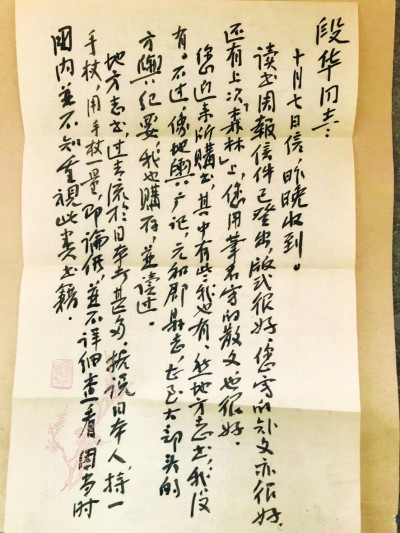 段华同志:
十月七日信,昨晚收到。
读书周报信件已登出,版式很好。您写的文亦很好。
还有上次「森林」上,您用笔名写的散文,也很好。
您近来所购书,其中有些我也有,然地方志书,我没
有。不过,像地舆广记,元和郡县志,大部头的
方舆纪要,我也购存,並读过。
地方志书过去流于日本甚多,据说日本人,持一
手杖,用手杖一量,即论价,並不详细查看,因当时
國内並不知重視此类书籍。